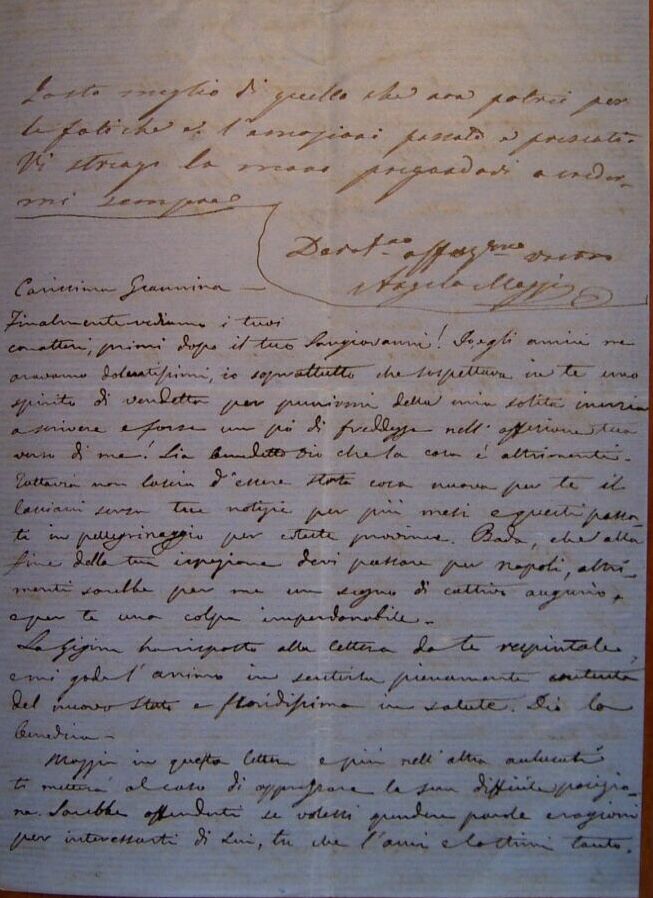 sto meglio di quello che non potrei per
le fatiche e l'emozioni passate e presenti.
Vi stringo la mano pregandovi a creder-
mi sempre
Devot.mo affez.mo vostro
Angelo Maggi
Carissima Giannina —
Finalmente vediamo i tuoi
caratteri, primi dopo il tuo Sangiovanni! Noi ne
eravamo dolentissimi, io soprattutto che sospettava in te uno
spirito di vendetta per punirmi della mia solita inerzia
a scrivere e forse un pò di freddezza nell'affezione tua
verso di me! Sia benedetto Dio che la cosa è altrimenti.
Tuttavia non lascia d'essere stata cosa nuova per te il
lasciarci senza tue notizie per più mesi e questi passa-
ti in pellegrinaggio per coteste province. Bada, che alla
fine della tua ispezione devi passare per Napoli, altri-
menti sarebbe per me un segno di cattivo augurio,
e per te una colpa imperdonabile.
La Gigina ha risposto alla lettera da te respintale,
e mi gode l'animo in sentirla pienamente contenta
del nuovo stato e floridissima in salute. Dio la
benedica —
in questa lettera e più nell'altra
ti metterà al caso di apprezzare la sua difficile posizio-
ne. Sarebbe offenderti se volessi spendere parole e ragioni
per interessarti di Lui, tu che l'ami e lo stimi tanto.